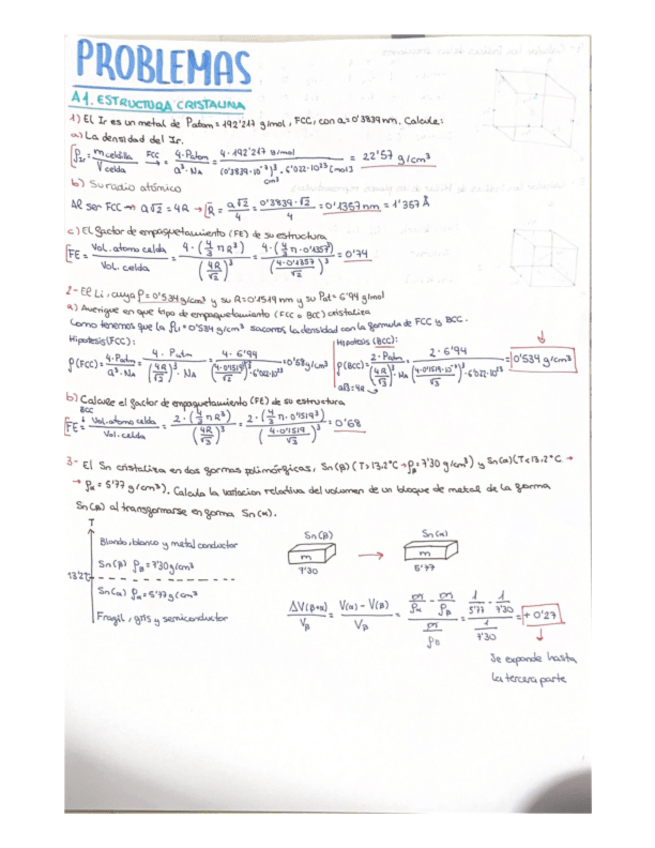 PROBLEMAS
A1. ESTRUCTURA CRISTALINA
1) El Ir es un metal de Patom = 192'217 g/mol, FCC, con a = 0'3839 nm. Calcule:
a) La densidad del Ir.
ρIr = m celdilla / V celda FCC → 4·Patom / a³·NA = 4·192'217 g/mol / (0'3839·10⁻⁷)³·6'022·10²³ (mol) = 22'57 g/cm³
cm³
b) Su radio atómico
Al ser FCC → a√2 = 4R → R = a√2 / 4 = 0'3839·√2 / 4 = 0'1357 nm = 1'357 Å
c) El factor de empaquetamiento (FE) de su estructura
FE = Vol. atomo celda / Vol. celda = 4·(4/3 π R³) / (4R/√2)³ = 4·(4/3 π·0'1357³) / (4·0'1357/√2)³ = 0'74
2- El Li, cuya ρ = 0'534 g/cm³ y su R = 0'1519 nm y su Pat = 6'94 g/mol
a) Averigue en que tipo de empaquetamiento (FCC o BCC) cristaliza
Como tenemos que la ρLi = 0'534 g/cm³ sacamos la densidad con la formula de FCC y BCC.
Hipotesis (FCC):
ρ(FCC) = 4·Patom / a³·NA = 4·Patm / (4R/√2)³·NA = 4·6'94 / (4·0'1519/√2)³·6'022·10²³ = 0'58 g/cm³
Hipotesis (BCC):
ρ(BCC) = 2·Patom / (4R/√3)³·NA = 2·6'94 / (4·0'1519·10⁻⁷/√3)³·6'022·10²³ = 0'534 g/cm³
a√3 = 4R
b) Calcule el factor de empaquetamiento (FE) de su estructura
BCC
FE = Vol. atomo celda / Vol. celda = 2·(4/3 π R³) / (4R/√3)³ = 2·(4/3 π·0'1519³) / (4·0'1519/√3)³ = 0'68
3- El Sn cristaliza en dos formas polimórficas, Sn(β) (T>13.2°C → ρβ = 7'30 g/cm³) y Sn(α) (T<13.2°C →
→ ρα = 5'77 g/cm³). Calcula la variacion relativa del volumen de un bloque de metal de la forma
Sn(β) al transformarse en forma Sn(α).
T
Blando, blanco y metal conductor
Sn(β) ρβ = 7'30 g/cm³
13'2°C
Sn(α) ρα = 5'77 g/cm³
Fragil, gris y semiconductor
Sn(β)
m
7'30
Sn(α)
m
5'77
ΔV(β→α) / Vβ = V(α) - V(β) / Vβ = (m/ρα - m/ρβ) / (m/ρβ) = (1/5'77 - 1/7'30) / (1/7'30) = +0'27
Se expande hasta
la tercera parte